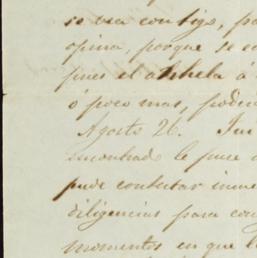 se vea contigo, po
opina, porque se e
pues el anhela á
ó poco mas, podie
Agosto 26.
encontrado le puse
pude contestar inme
diligencias para con
momentos en que l